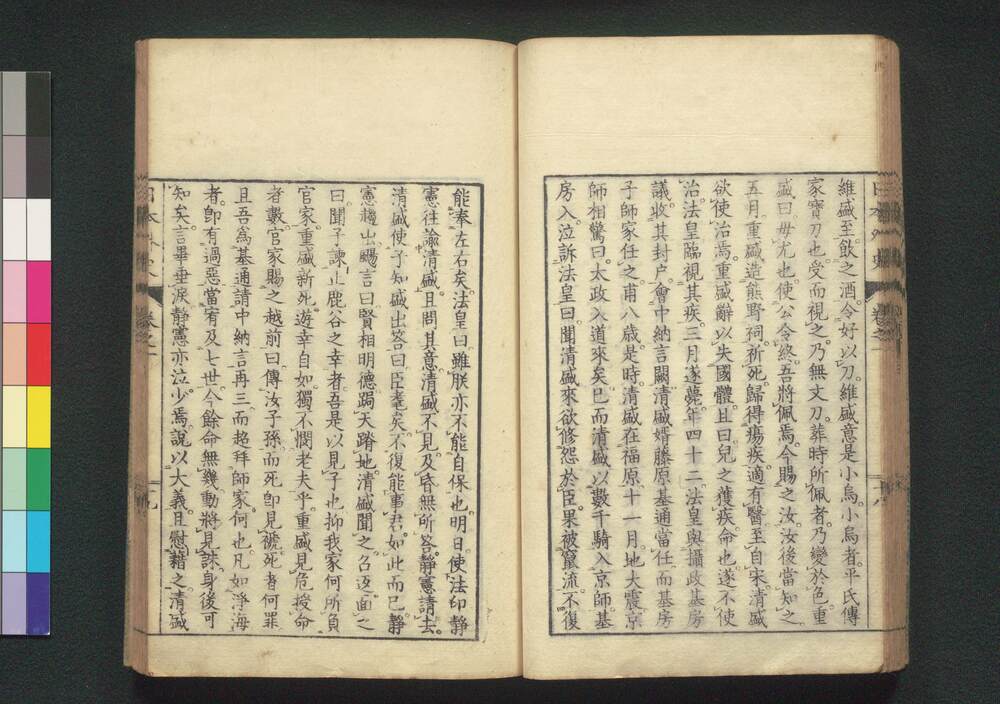 維盛至。飲之酒。令好以刀。維盛意是小烏。小烏者。平氏傳
家寶刀也。受而視之。乃無文刀。葬時所佩者。乃變於色。重
盛曰。毋尤也。使公令終。吾將佩焉。今賜之汝。汝後當知之。
五月。重盛造熊野祠。祈死。歸得瘍疾。適有醫至自宋。清盛
欲使治焉。重盛辭以失國體。且曰。兒之獲疾命也。遂不使
治。法皇臨視其疾。三月遂薨。年四十二。法皇與攝政基房
議。收其封戶。會中納言闕。清盛婿藤原基通當任。而基房
子師家任之。甫八歲。是時。清盛在福原。十一月。地大震。京
師相驚曰。太政入道來矣。已而清盛以數千騎入京師。基
房入。泣訴法皇曰。聞清盛來欲修怨於臣。果被竄流。不復
能奉左右矣。法皇曰。雖朕亦不能自保也。明日使法印靜
憲往諭清盛。且問其意。清盛不見。及昏無所答。靜憲請去。
清盛使子知盛出答曰。臣耄矣。不復能事君。如此而已。靜
憲趨出颺言曰。賢相明德。跼天蹐地。清盛聞之。召返。面之
曰。聞子諫止鹿谷之幸者。吾是以見子也。抑我家何所負
官家。重盛新死。遊幸自如。獨不憫老夫乎。重盛見危授命
者數。官家賜之越前曰。傳汝子孫。而死即見褫。死者何罪。
且吾爲基通請中納言再三。而超拜師家何也。凡如淨海
者。即有過惡。當宥及七世。今餘命無幾。動將見誅。身後可
知矣。言畢垂淚。靜憲亦泣。少焉。說以大義。且慰藉之。清盛